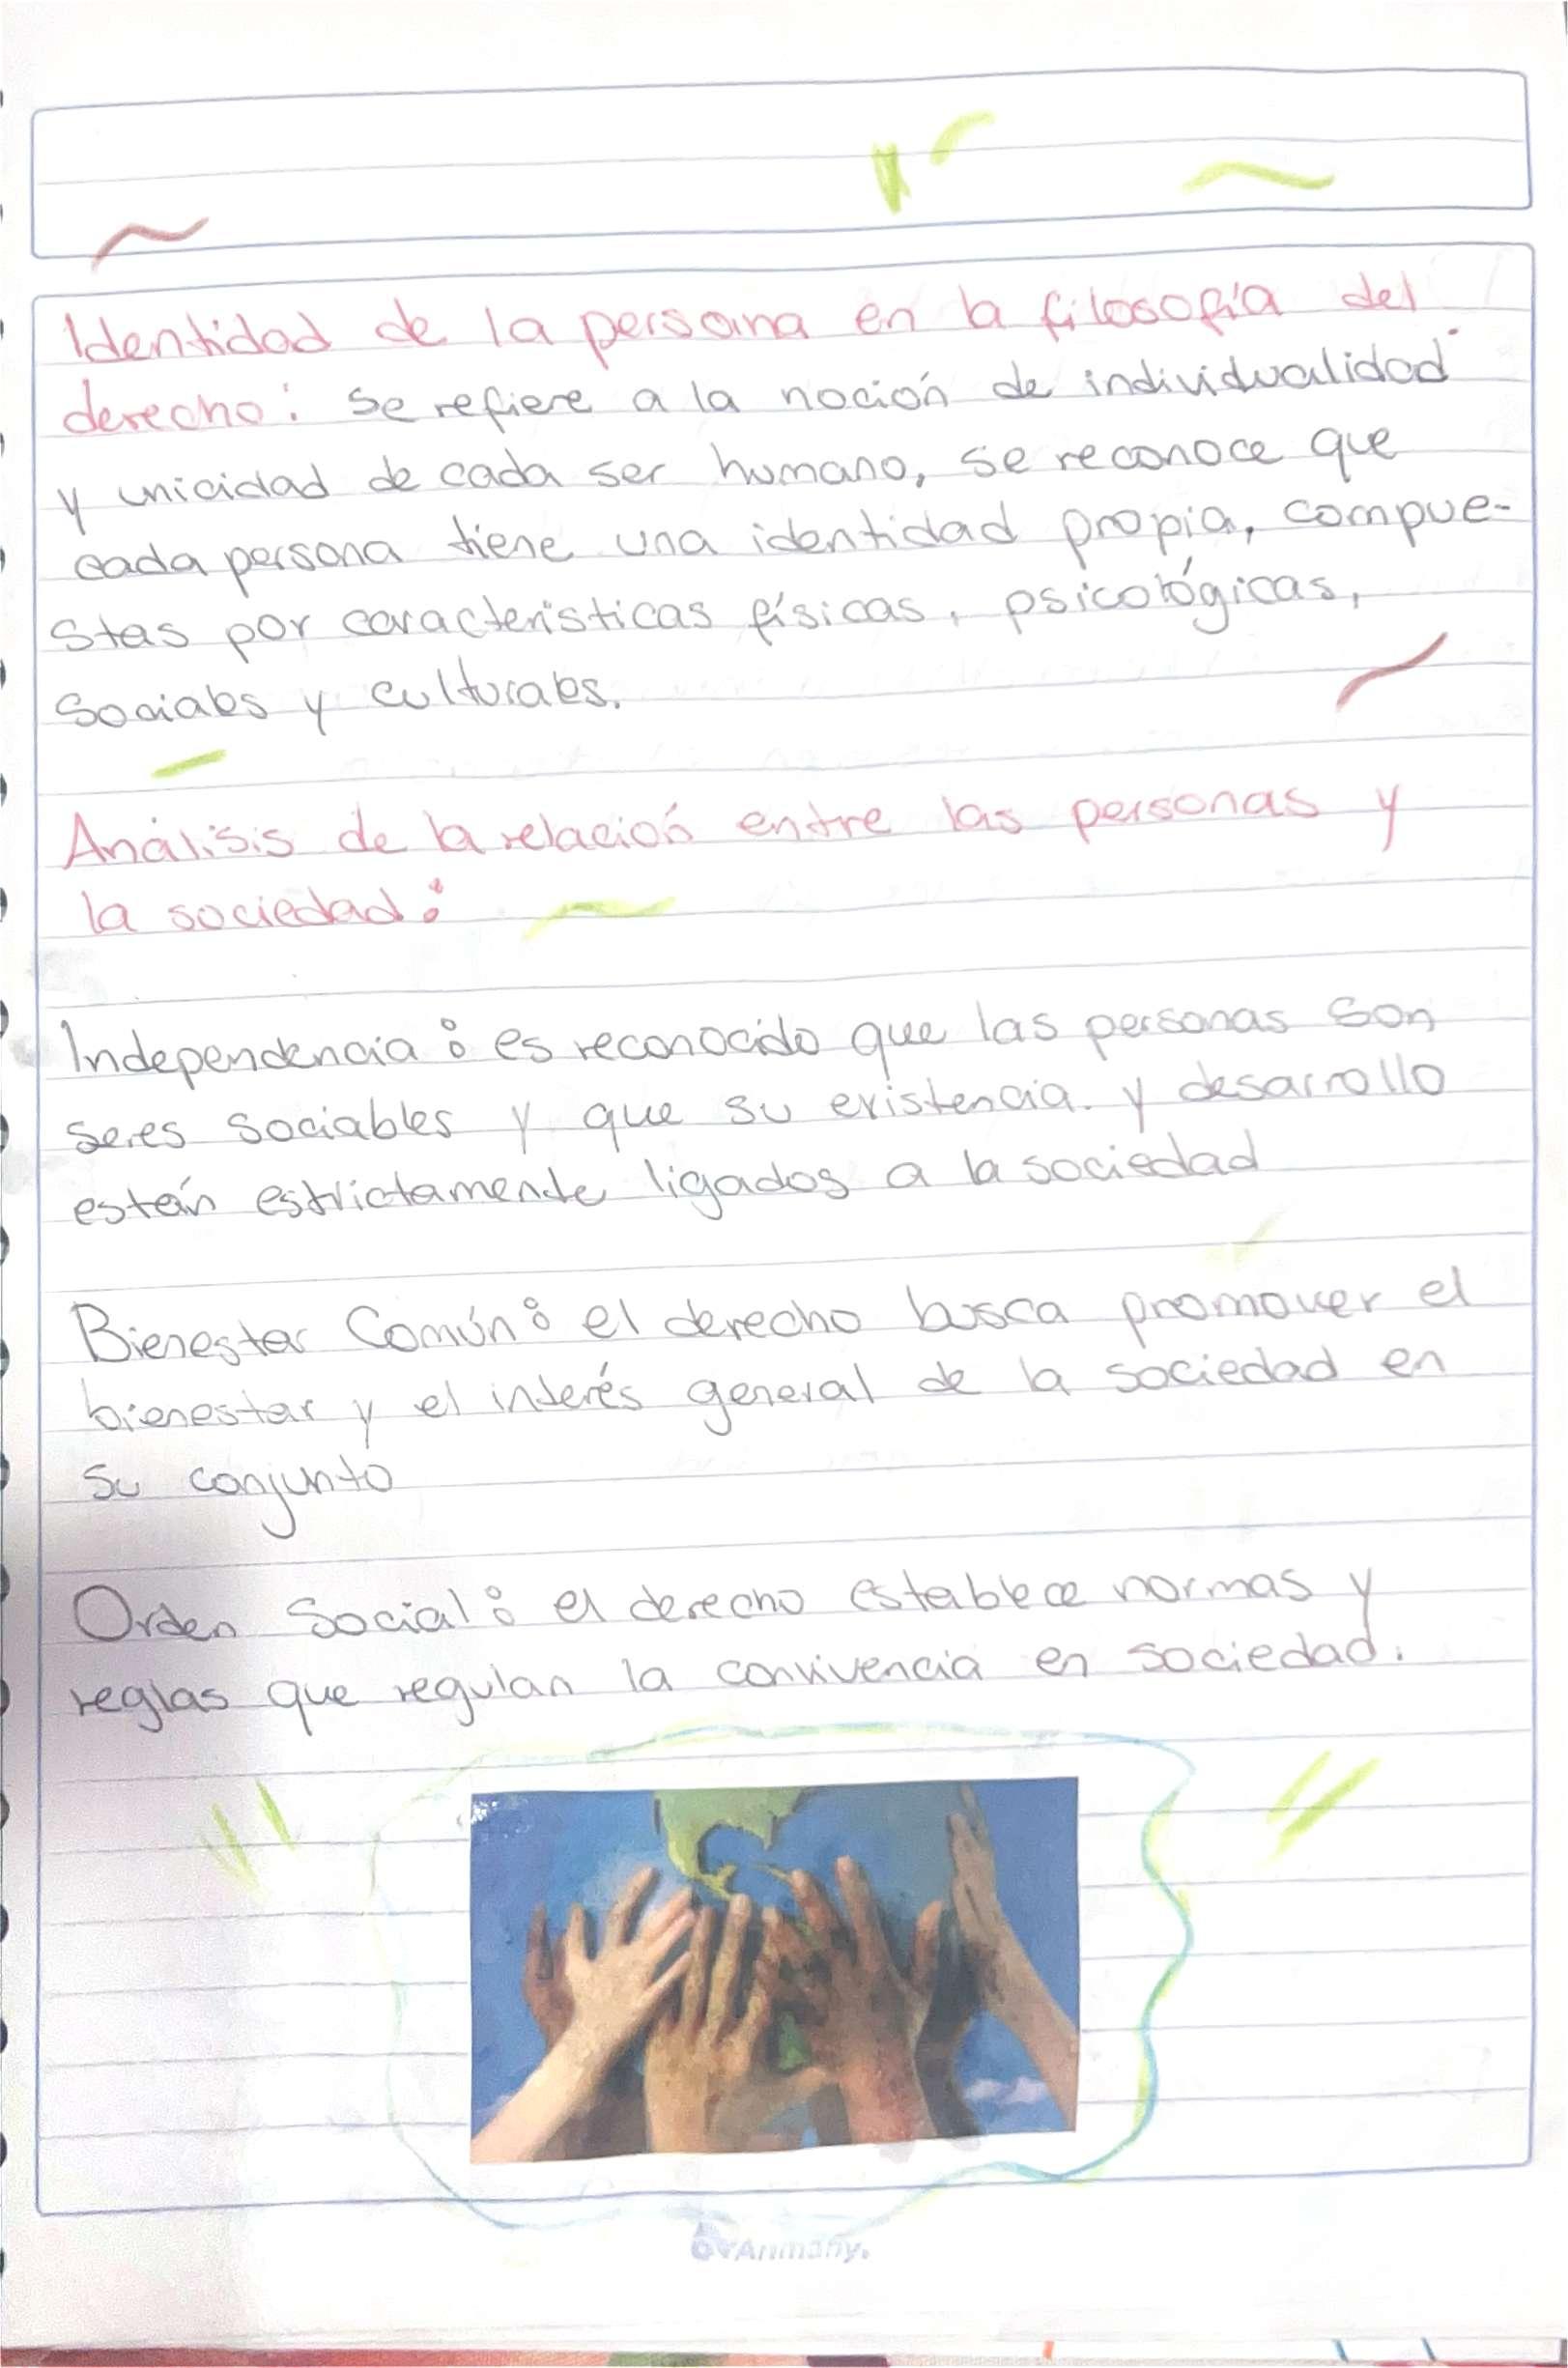 Identidad de la persona en la filosofía del
derecho: se refiere a la noción de individualidad
y unicidad de cada ser humano, se reconoce que
cada persona tiene una identidad propia, compue-
stas por características físicas, psicológicas,
sociales y culturales.
Análisis de la relación entre las personas y
la sociedad:
Independencia: es reconocido que las personas son
seres sociables y que su existencia y desarrollo
están estrictamente ligados a la sociedad
Bienestar Común: el derecho busca promover el
bienestar y el interés general de la sociedad en
su conjunto
Orden Social: el derecho establece normas y
reglas que regulan la convivencia en sociedad.